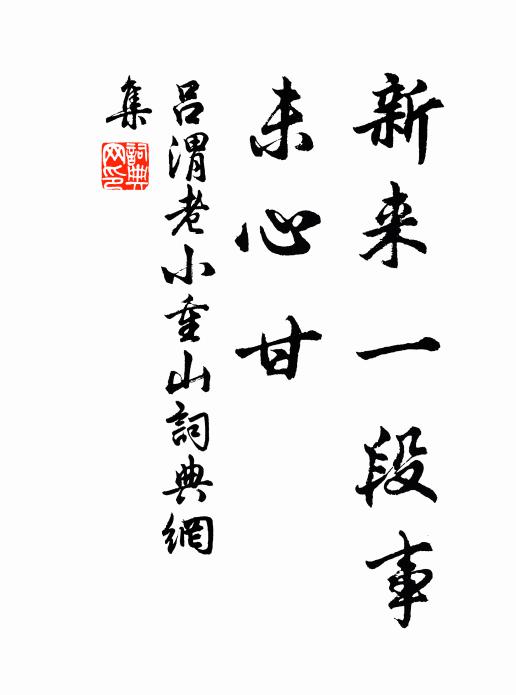 新来一段事
未心甘
吕渭老小重山詞典網
集
詞典
网印